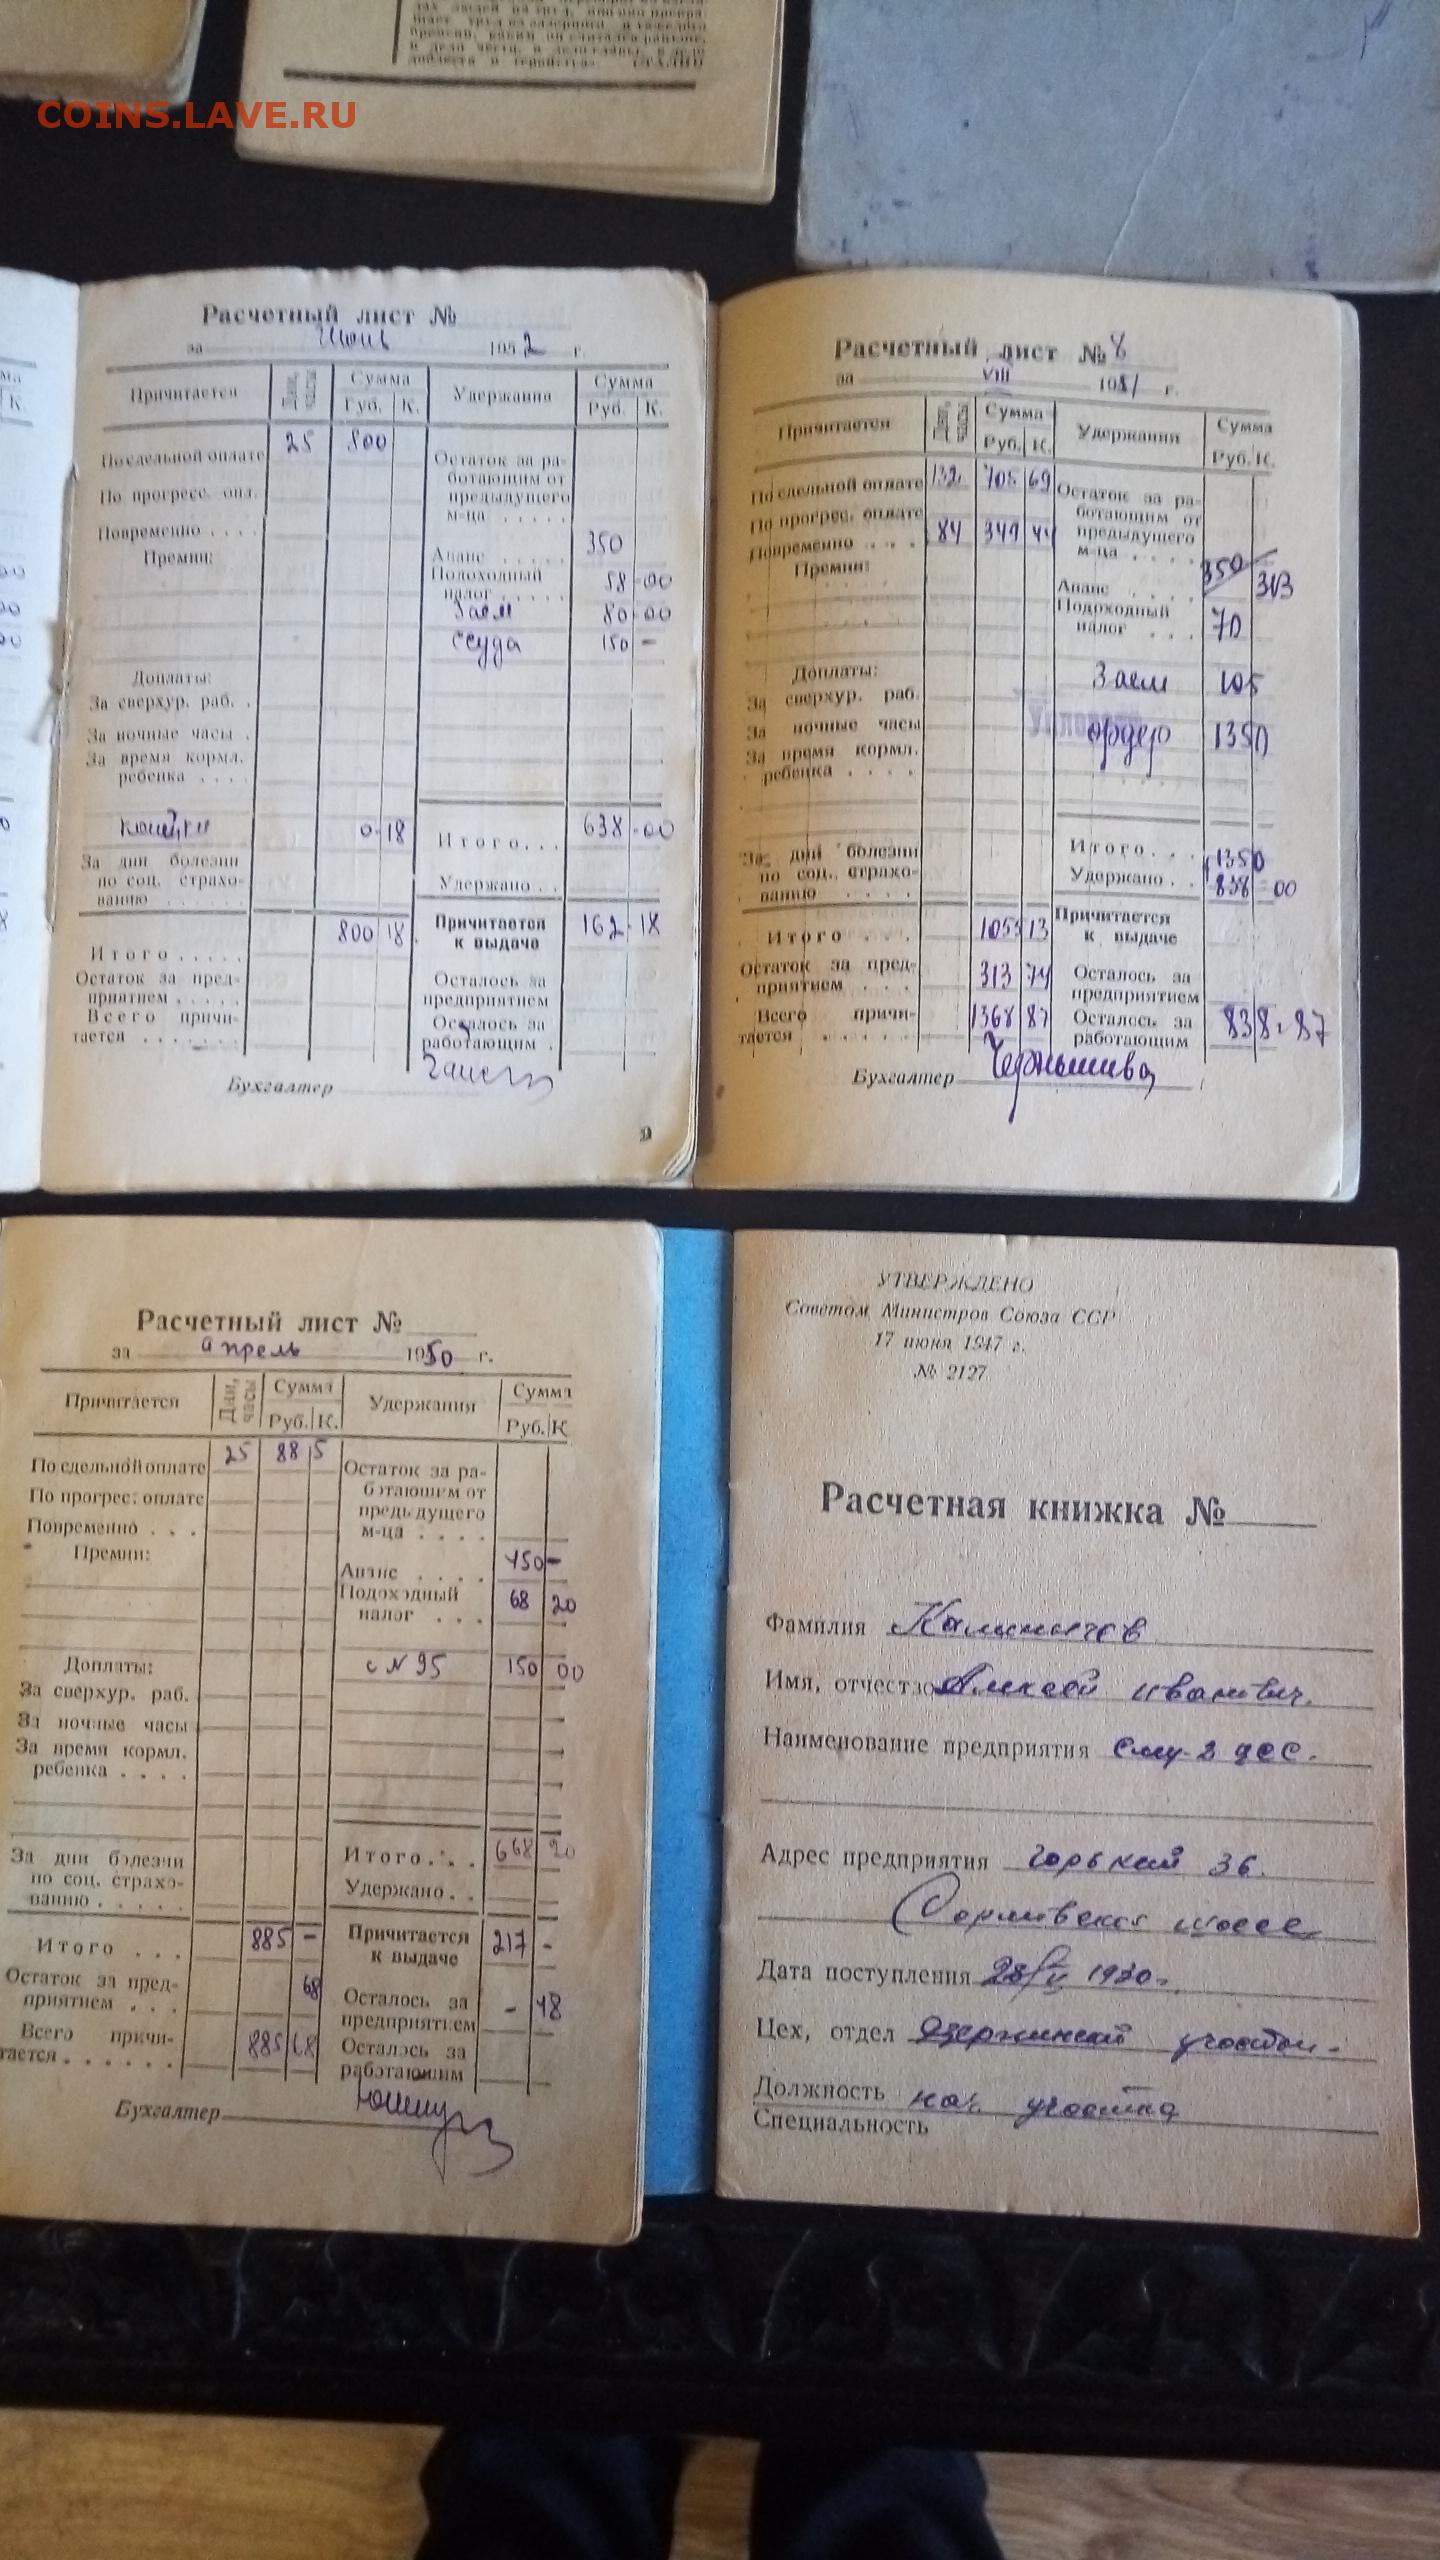 COINS.LAVE.RU
Расчетный лист №
за Июнь 1952 г.
Причитается Дни, часы Сумма Удержания Сумма
Руб. К. Руб. К.
По сдельной оплате 25 800
Остаток за ра-
ботающим от
предыдущего
м-ца . . . . .
По прогресс. опл.
Повременно . . . .
Премии:
Аванс . . . . . 350
Подоходный
налог . . . . . 58-00
Заем 80-00
ссуда 150 -
Доплаты:
За сверхур. раб. .
За ночные часы .
За время кормл.
ребенка . . . .
копейки 0-18
Итого. . . 638-00
За дни болезни
по соц. страхо-
ванию . . . . . .
Удержано . .
Итого . . . . . 800 18
Причитается
к выдаче 162-18
Остаток за пред-
приятием . . . . .
Всего причи-
тается . . . . . . .
Осталось за
предприятием
Осталось за
работающим .
Бухгалтер
9
Расчетный лист № 8
за VIII 1951 г.
Причитается Дни, часы Сумма Удержания Сумма
Руб. К. Руб. К.
По сдельной оплате 132 705 69
По прогрес. оплате
Повременно . . . . 84 349 44
Премии:
Остаток за ра-
ботающим от
предыдущего
м-ца . . . .
Аванс . . . . 350 313
Подоходный
налог . . . 70
Заем 105
ордер 1350
Доплаты:
За сверхур. раб.
За ночные часы
За время кормл.
ребенка . . . .
Итого. . . 1350
Удержано . . 838-00
За дни болезни
по соц. страхо-
ванию . . . .
Итого . . . 1055 13
Причитается
к выдаче
Остаток за пред-
приятием . . . 313 74
Всего причи-
тается . . . . . . 1368 87
Осталось за
предприятием
Осталось за
работающим 838-87
Бухгалтер Чернышева
Расчетный лист №
за апрель 1950 г.
Причитается Дни, часы Сумма Удержания Сумма
Руб. К. Руб. К
По сдельной оплате 25 885
По прогрес. оплате
Повременно . . .
Премии:
Остаток за ра-
ботающим от
предыдущего
м-ца . . . .
Аванс . . . . 450-
Подоходный
налог . . . 68 20
с N 95 150 00
Доплаты:
За сверхур. раб.
За ночные часы
За время кормл.
ребенка . . . .
За дни болезни
по соц. страхо-
ванию . . . . .
Итого. . . 668 20
Удержано . .
Итого . . . 885 -
Причитается
к выдаче 217 -
Остаток за пред-
приятием . . . 68
Всего причи-
тается . . . . . . 885 68
Осталось за
предприятием - 48
Осталось за
работающим
Бухгалтер
УТВЕРЖДЕНО
Советом Министров Союза ССР
17 июня 1947 г.
№ 2127
Расчетная книжка №
Фамилия Калинычев
Имя, отчество Алексей Иванович.
Наименование предприятия
Адрес предприятия Горький 36.
Сормовское шоссе
Дата поступления 1950.
Цех, отдел Дзержинский участок.
Должность нач. участка
Специальность